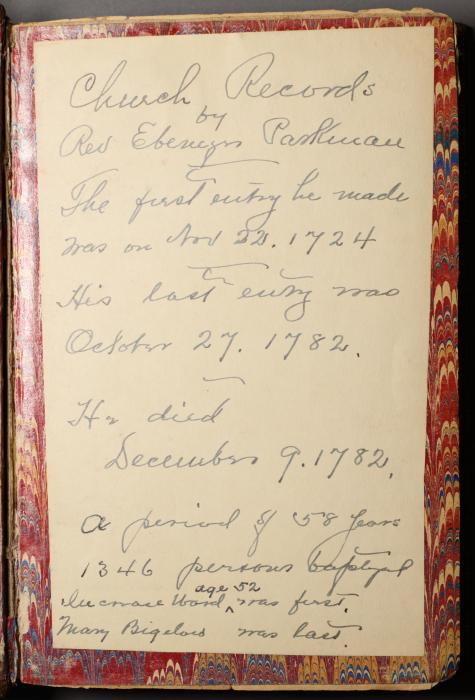 Church Records
by
Rev Ebenezer Parkman
The first entry he made
was on Nov 22. 1724
His last entry was
October 27. 1782.
He died
December 9. 1782.
A period of 58 years
1346 persons baptized
age 52
Increase Ward ^ was first.
Mary Bigelow was last.